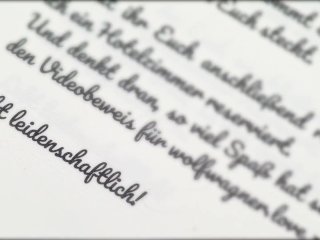 ihr Euch anschließend
ein Hotelzimmer reserviert.
Und denkt dran, so viel Spaß hat
den Videobeweis für wolfwagner.love
leidenschaftlich!